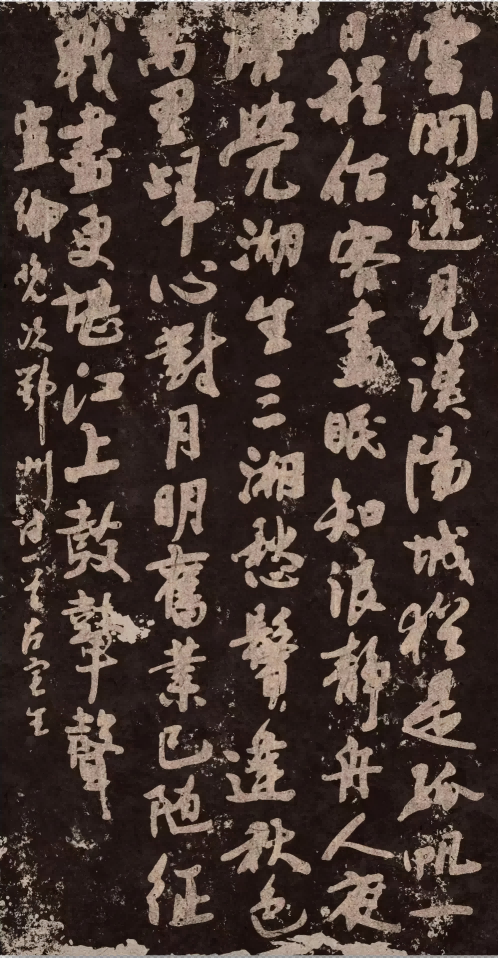 雲開遠見漢陽城猶是孤帆一
日程估客晝眠知浪靜舟人夜
語覺湖生三湘愁鬢逢秋色
萬里歸心對月明舊業已随征
戰盡更堪江上鼓鼙聲
盧綸晚次鄂州詩一首